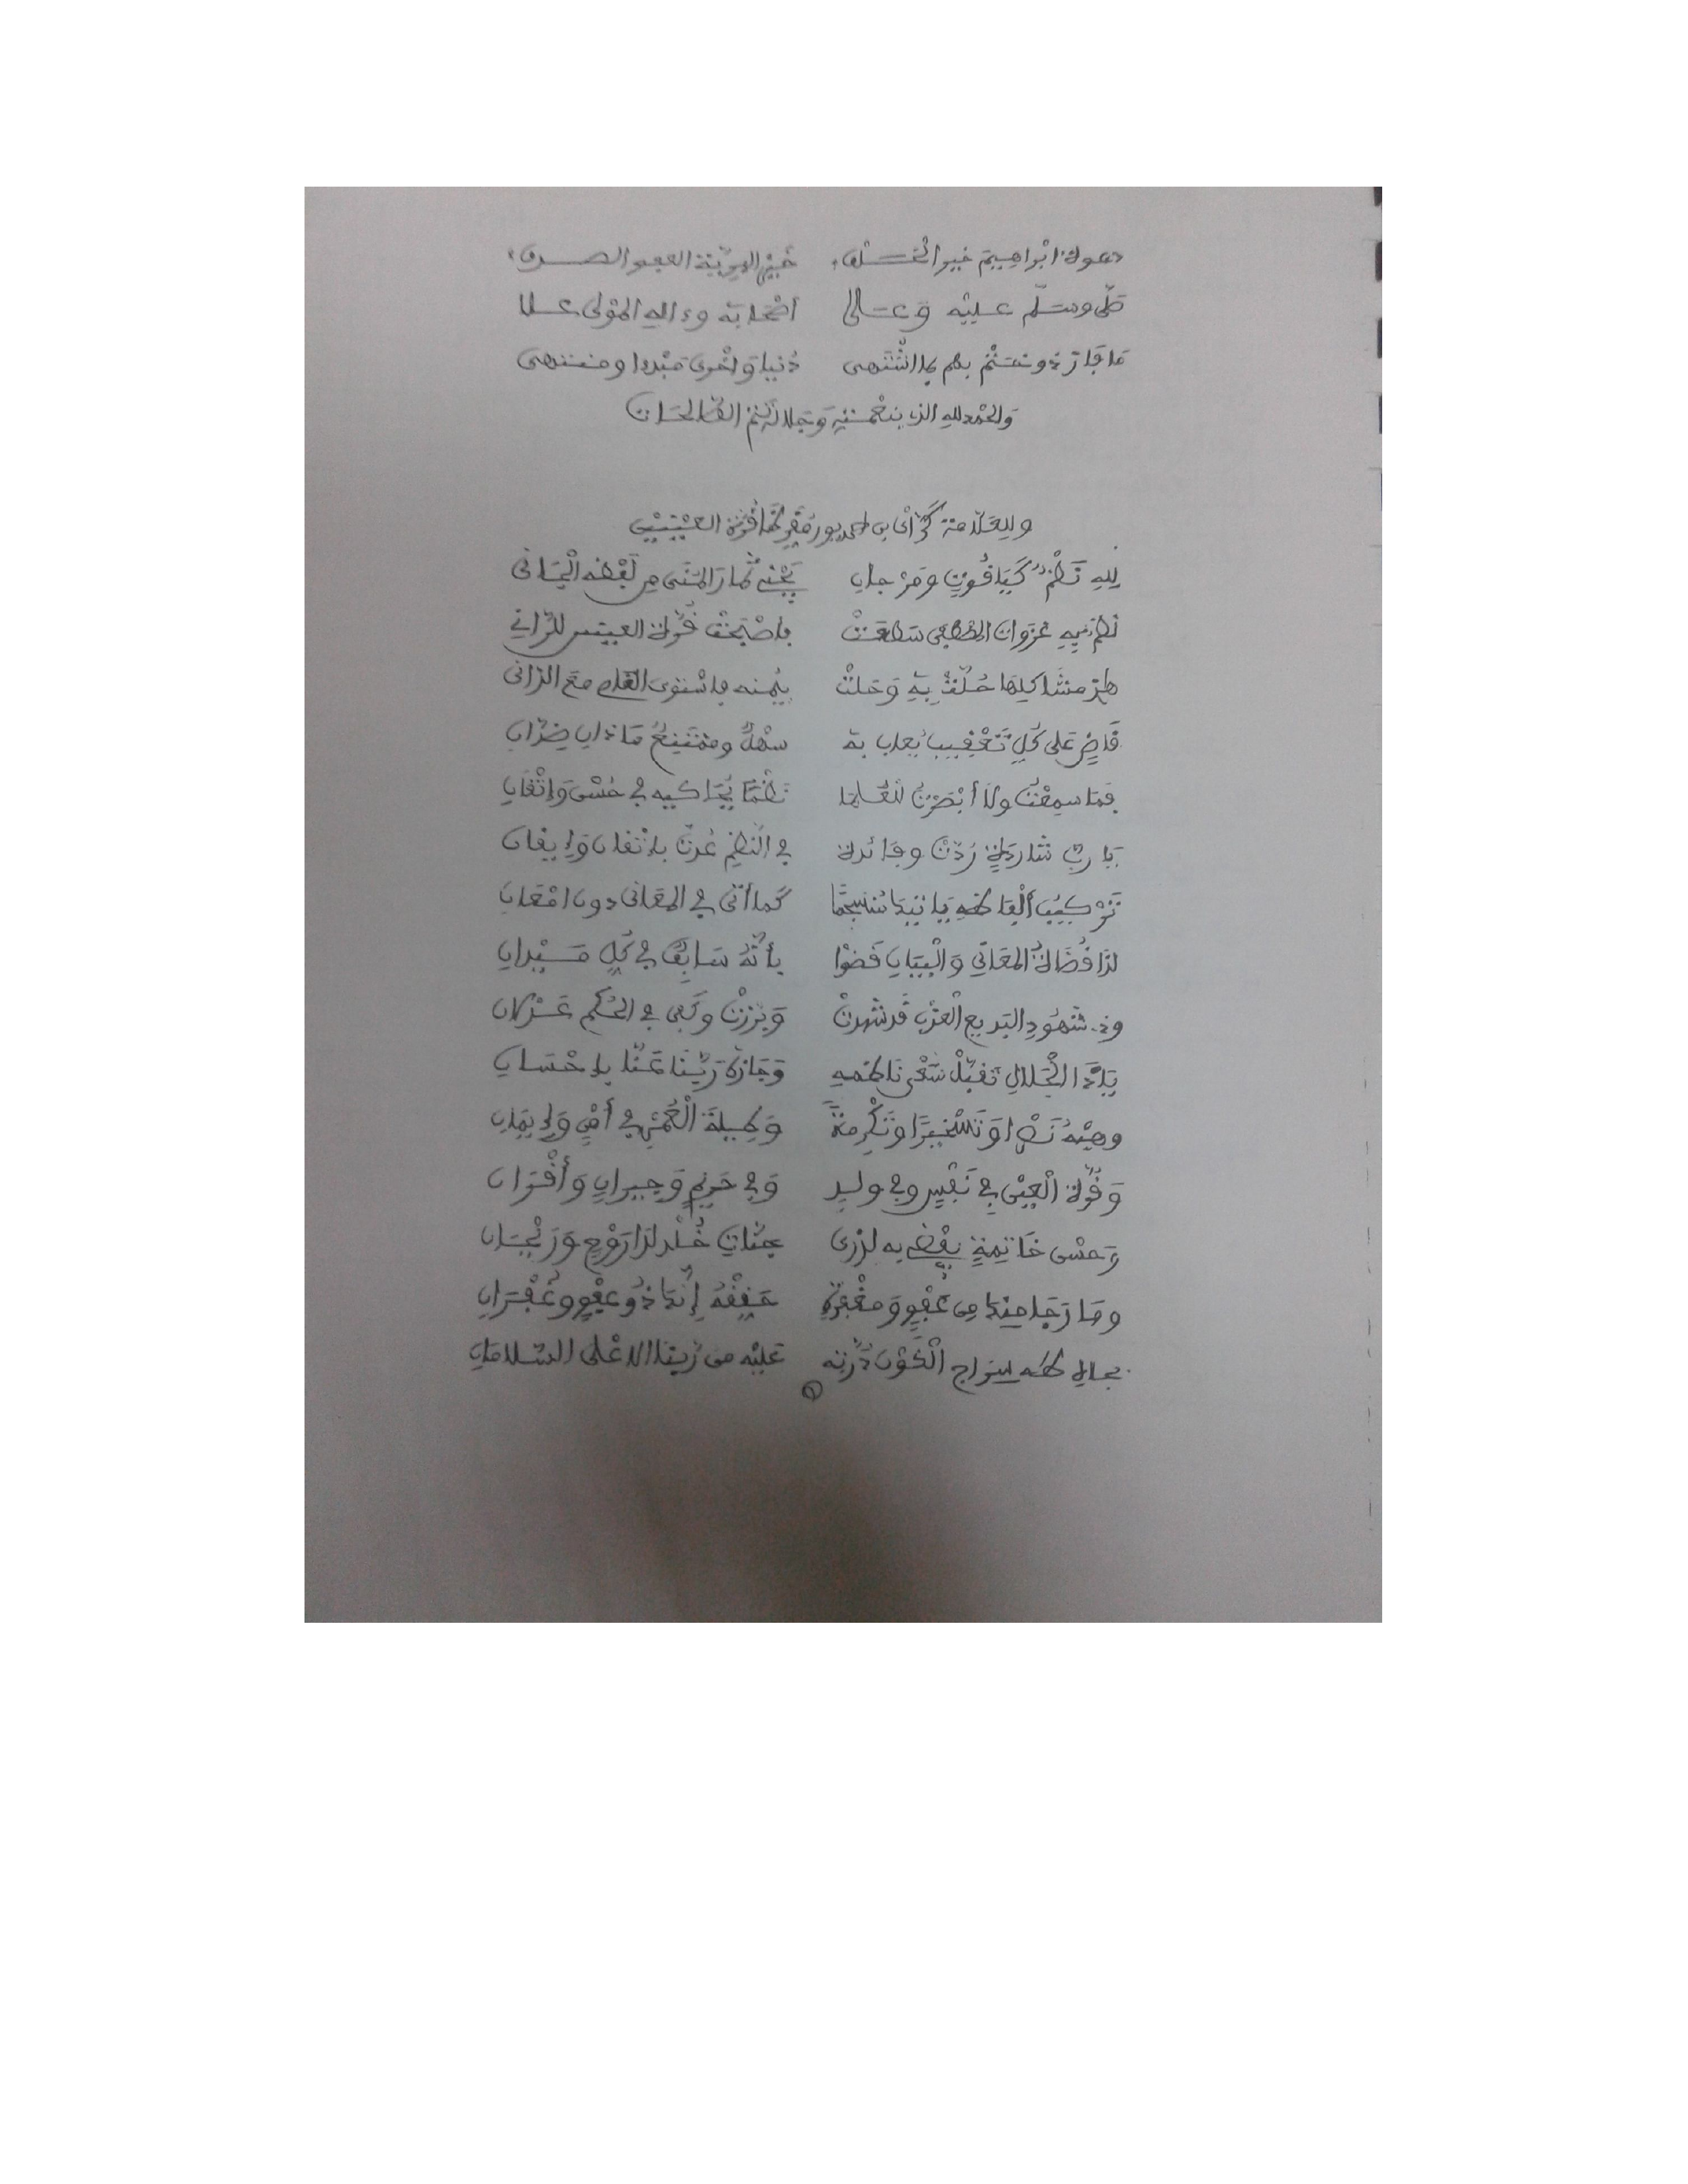 دعوة ابراهيم خير الخلق خير البرية
صلى وسلم عليه وعلى أصحابه وءاله المولى علا
ما فاز ذو تختم بهم بما اشتهى دنيا وأخرى مبدءا ومنتهى
والحمد لله الذي بنعمته وجلاله تتم الصالحات
وللعلامة كراي بن أحمد يوره مقرظا قرة العينين
للهِ نَظْمٌ كَيَاقُوتٍ ومَرْجانِ يَجْنِي ثمارَ المُنَى مِن لَفْظه الْجَانى
نظم به غزوات المصطفى سطعت فأصْبَحَتْ قُرّة العينين للرّانِي
مشاكلها حُلّت بِهِ وَحَلتْ بيُمنه فاسْتوى القاصِ معَ الدّانى
قَاضٍ عَلى كُلِّ تَعْقِيب يعاب به سهْلٌ ومُمْتَنِعٌ مَا ذانِ ضِدّانِ
فمَا سمِعْتُ ولا أبْصَرْتُ للعُلما نَظْمًا يُحَاكيه في حُسْن وَإتْقانِ
يا رب شاردةٍ رُدّتْ وفائدة في النّظمِ عُدت بإتْقان وَإيقان
تَرْكيبُ ألْفاظهِ يا تيك مُنسجمًا كما أتى في المعَانى دون امْعَانِ
لذا قُضَاةُ المعَانِي وَالْبَيَانِ قَضَوْا بأنّهُ سَابِقٌ في كُلِّ مَيْدانِ
وذي شهُودِ البَديع الْعَدْلِ قد شهدتْ وَبَرَزتْ وكَفى في الحُكم عَدْلان
يا ذا الْجَلالِ تَقبّلْ سَعْى ناظمهِ وجَازهِ رَبّنَا عَنّا بإحْسَانِ
وهبْهُ نَصْرا وَتَسْخيرًا وَتَكْرِمةً وَطِيلَةَ الْعُمْرِ في أمْنٍ وَإيمَانِ
وَقُرّةَ الْعَيْنِ في نَفْسٍ وفي ولدٍ وَفِي حَرِيمٍ وَجِيرانٍ وَأقْرَان
وَحُسْنَ خَاتِمةٍ يُفْضى به لذرى جنّاتِ خُلْد لذا رَوْحٍ وَرَيْحَانِ
ومَا رَجَا منكَ مِن عَفْوٍ وَمغْفرَةٍ حَقِّقْهُ إنّكَ ذُو عفْوٍ وغُفْرَانِ
بجاهِ طه سِرَاج الْكَوْن دُرّته عَليْه من رَبّنا الاعْلى السّلامانِ